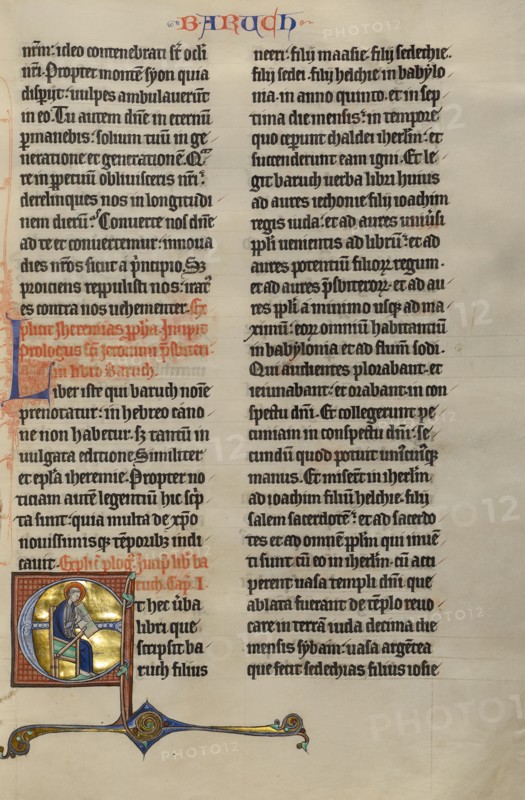 BARUCH
nr̄m: ideo contenebrati st̄ ocl̄i
nr̄i. Propter montē syon quia
disp̄ijt: uulpes ambulauer̄t
in eo. Tu autem dn̄e in eternū
p̄manebis: solium tuū in ge
neratione et generationē. Qͣ
re in p̄petuū obliuisceris nr̄i:
derelinques nos in longitudi
nem dierū? Conuerte nos dn̄e
ad te et conuertemur: innoua
dies nr̄os sicut a p̄ncipio. Sꝫ
proiciens reppulisti nos: irat᷒
es contra nos uehementer. Ex
plicit Jheremias ꝓpha. Incipit
prologus sc̄i ieronimi p̄sbiteri
in libro Baruch.
Liber iste qui baruch noīe
prenotatur: in hebreo cano
ne non habetur. sꝫ tantū in
uulgata editione. Similiter
et epl̄a iheremie. Propter no
ticiam autē legentium hic sc̄p
ta sunt: quia multa de xp̄o
nouissimisqꝫ tēporibꝫ indi
cauit. Explic̄ ꝓlog᷒. Incip̄ lib̄ ba
ruch. Cap̄. I.
Et hec ūba
libri que
scripsit ba
ruch filius
neeri. filij maasie. filij sedechie.
filij sedei. filij helchie in babylo
nia. in anno quinto. et in sep
tima die mensis: in tempore
quo ceperunt chaldei iherl̄m: et
succenderunt eam igni. Et le
git baruch uerba libri huius
ad aures iechonie filij ioachim
regis iuda: et ad aures uniūsi
ppl̄i uenientis ad librū: et ad
aures potentiū filioꝝ regum.
et ad aures p̄sbiteroꝝ. et ad au
res ppl̄i a minimo usqꝫ ad ma
ximū: eoꝝ omniū habitantiū
in babylonia et ad flum̄ sodi.
Qui audientes plorabant. et
ieiunabant: et orabant in con
spectu dn̄i. Et collegerunt pe
cuniam in conspectu dn̄i. se
cundū quod potuit unī᷒cuiusqꝫ
manus. Et miser̄t in iherl̄m
ad ioachim filiū helchie. filij
salem sacerdotē: et ad sacerdo
tes et ad omnē ppl̄m qui inuē
ti sunt cū eo in iherl̄m: cū acci
perent uasa templi dn̄i que
ablata fuerant de tēplo reuo
care in terrā iuda decima die
mensis syban: uasa argētea
que fecit sedechias filius iosie
PHOTO12